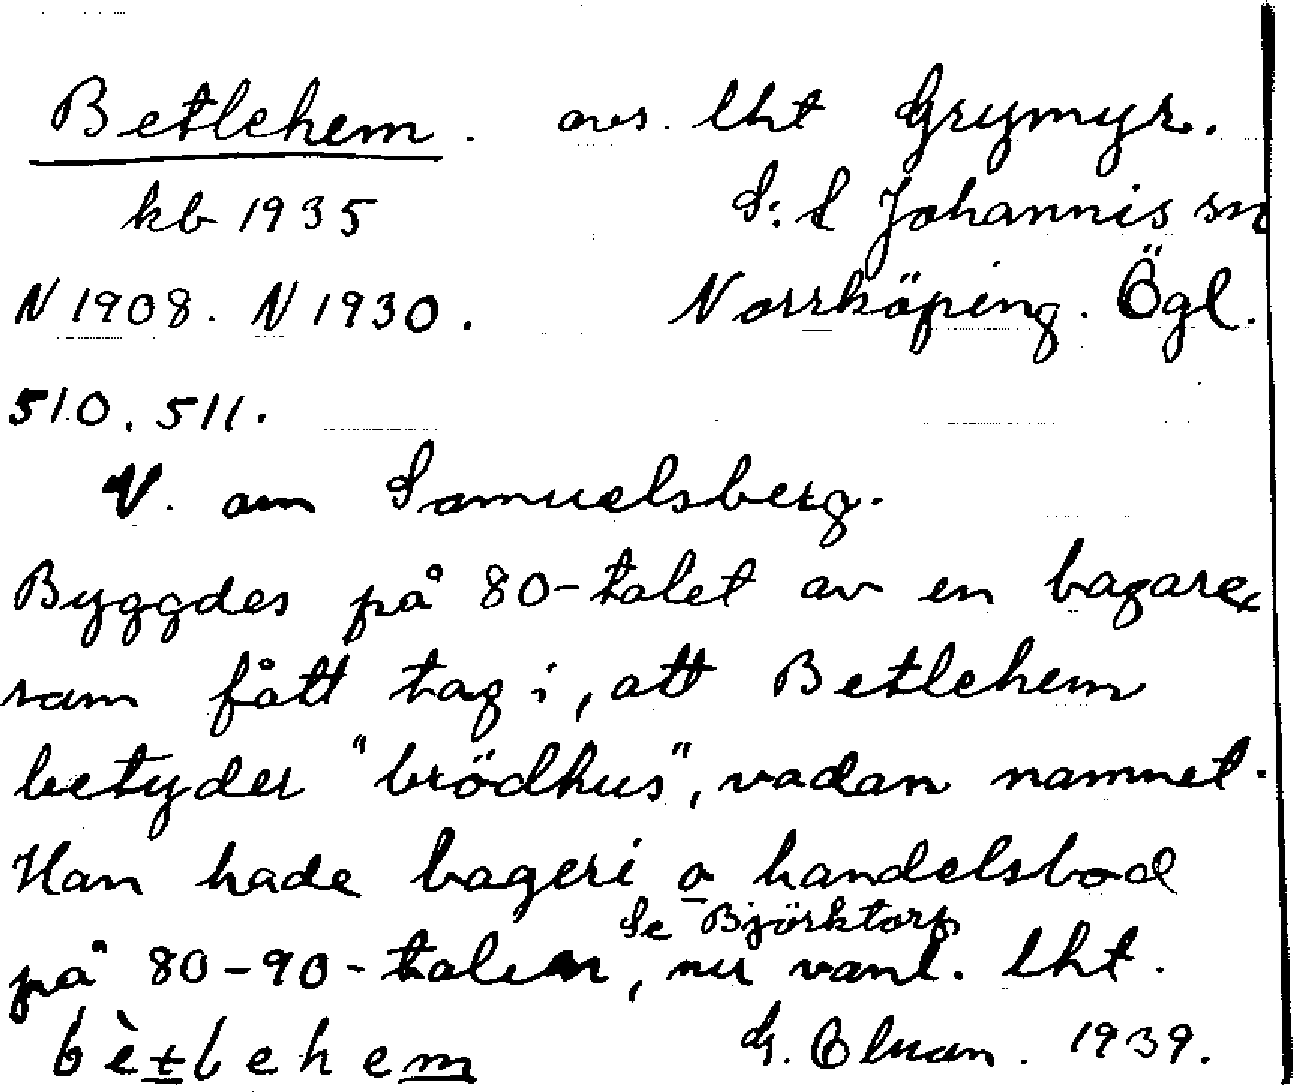 Betlehem. avs. lht Grymyr.
kb 1935 S:t Johannis sn
N 1908. N 1930. Norrköping. Ögl.
510. 511.
V. om Samuelsberg.
Byggdes på 80-talet av en bagare,
som fått tag i, att Betlehem
betyder "brödhus", vadan namnet.
Han hade bageri o handelsbod
Se Björktorp
på 80-90-talen, nu vanl. lht.
bètlehem G. 1939.